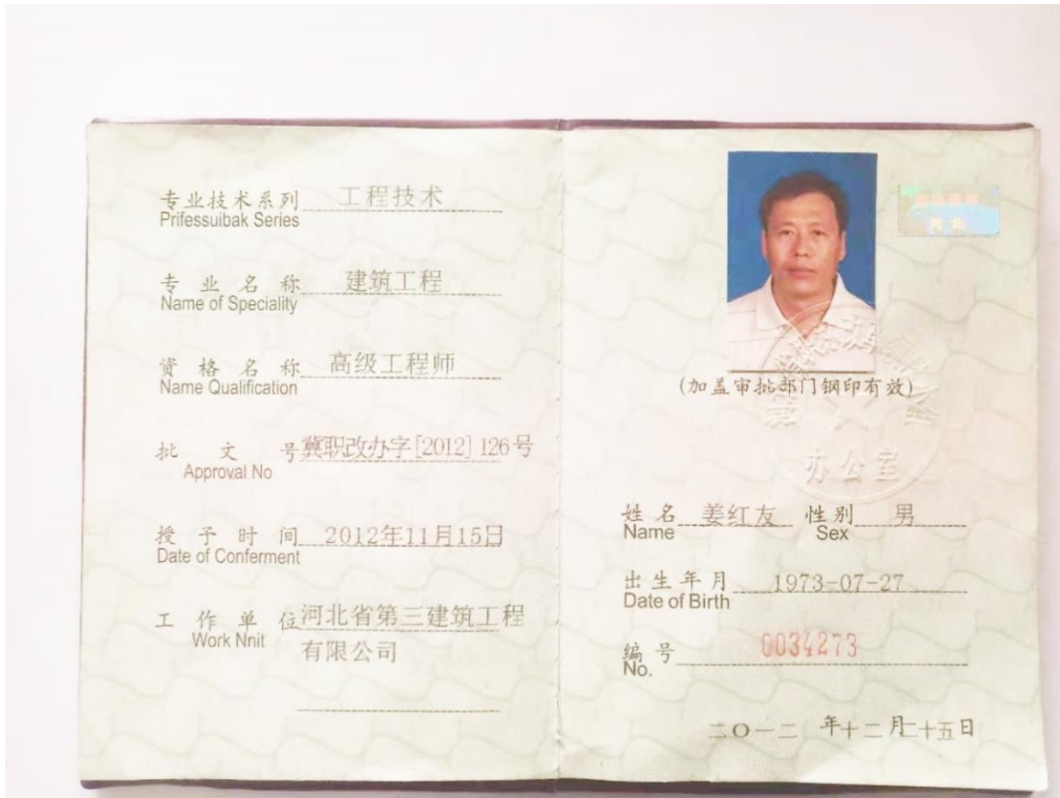 专业技术系列 工程技术
Prifessuibak Series
专业名称 建筑工程
Name of Speciality
资格名称 高级工程师
Name Qualification
批文号 冀职改办字[2012]126号
Approval No
授予时间 2012年11月15日
Date of Conferment
工作单位 河北省第三建筑工程
Work Nnit
有限公司
河北
(加盖审批部门钢印有效)
办公室
姓名 姜红友 性别 男
Name Sex
出生年月 1973-07-27
Date of Birth
编号 0034273
No.
二〇一二年十二月二十五日